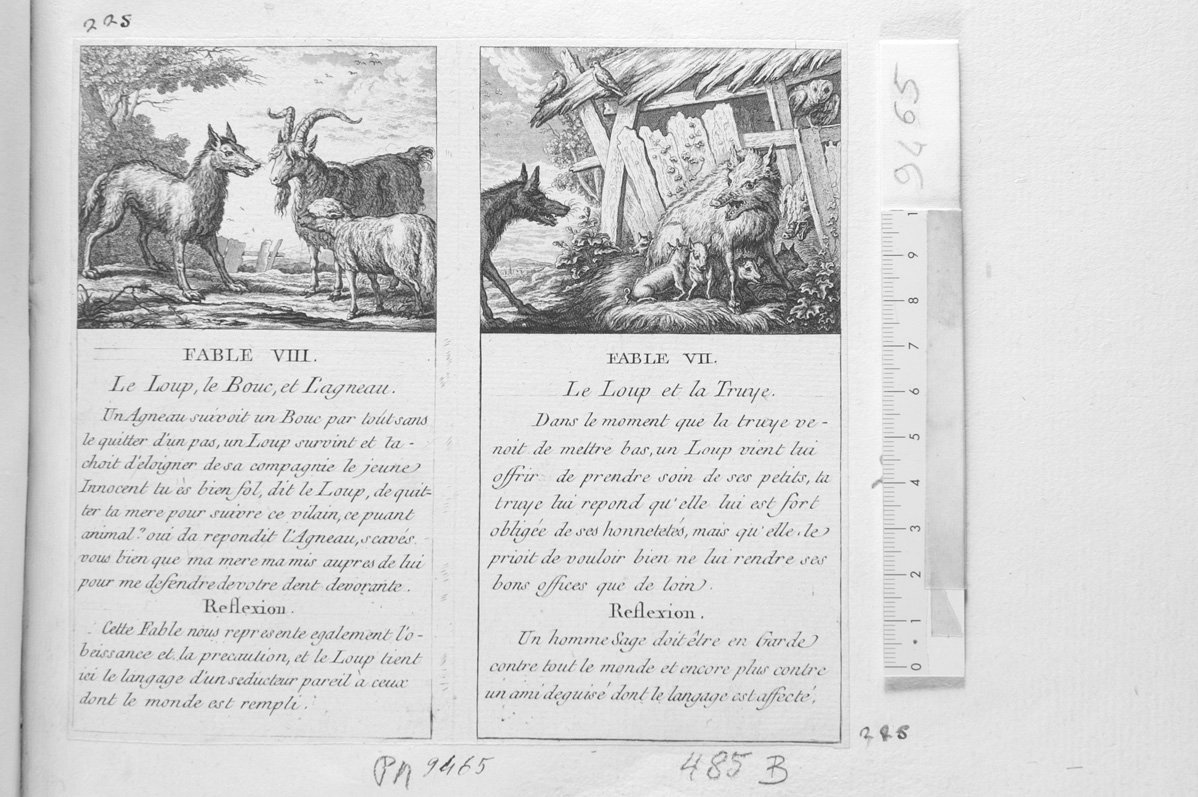 225
FABLE VIII.
Le Loup, le Bouc, et L'agneau.
Un Agneau suivoit un Bouc par toût sans
le quitter d'un pas, un Loup survint et ta-
choit d'éloigner de sa compagnie le jeune
Innocent tu ès bien fol, dit le Loup, de quit-
ter ta mere pour suivre ce vilain, ce puant
animal? oui da repondit L'Agneau, scavés
vous bien que ma mere ma mis aupres de lui
pour me defendre de votre dent devorante.
Reflexion.
Cette Fable nous represente egalement l'o-
beissance et la precaution, et le Loup tient
ici le langage d'un seducteur pareil à ceux
dont le monde est rempli.
FABLE VII.
Le Loup et la Truye.
Dans le moment que la truye ve-
noit de mettre bas, un Loup vient lui
offrir de prendre soin de ses petits, ta
truye lui repond qu'elle lui est fort
obligée de ses honnetetés, mais qu'elle le
prioit de vouloir bien ne lui rendre ses
bons offices que de loin.
Reflexion.
Un homme Sage doit être en Garde
contre tout le monde et encore plus contre
un ami deguisé dont le langage est affecté.
9465
1
9
8
7
6
5
4
3
2
1
0
225
PN 9465
485 B